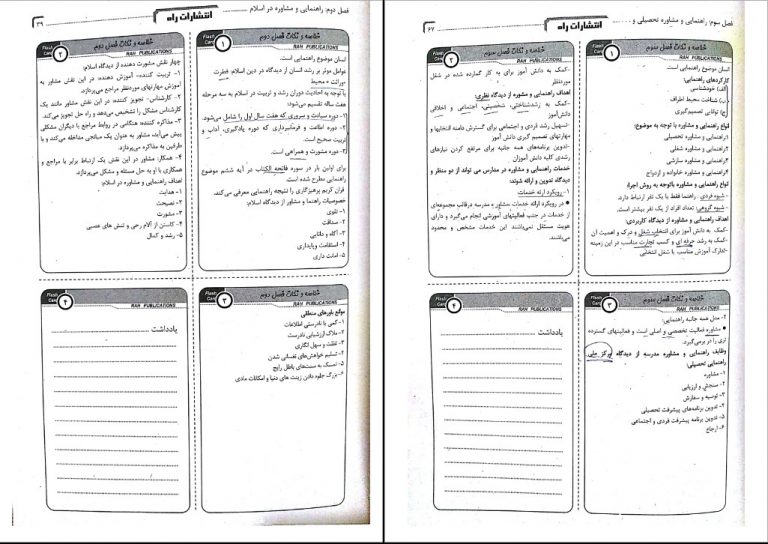 فصل سوم: راهنمایی و مشاوره تحصیلی و ....
انتشارات راه
۶۷
خلاصه و نکات فصل سوم
RAH PUBLICATIONS
۱
انسان موضوع راهنمایی است.
کارکردهای راهنمایی:
الف) خودشناسی
ب) شناخت محیط اطراف
ج) توانایی تصمیم‌گیری
انواع راهنمایی و مشاوره با توجه به موضوع:
۱-راهنمایی و مشاوره تحصیلی
۲-راهنمایی و مشاوره شغلی
۳-راهنمایی و مشاوره سازشی
۴-راهنمایی و مشاوره خانواده و ازدواج
انواع راهنمایی و مشاوره باتوجه به روش اجرا:
- شیوه فردی: راهنما فقط با یک نفر ارتباط دارد.
- شیوه گروهی: تعداد افراد از یک نفر بیشتر است.
اهداف راهنمایی و مشاوره از دیدگاه کاربردی:
-کمک به دانش آموز برای انتخاب شغلی و درک و اهمیت آن
-کمک به رشد حرفه ای و کسب تجارت مناسب در این زمینه
-تدارک آموزش مناسب با شغل انتخابی
Flash Card
۲
خلاصه و نکات فصل سوم
RAH PUBLICATIONS
-کمک به دانش آموز برای به کار گمارده شده در شغل
موردنظر
اهداف راهنمایی و مشاوره از دیدگاه نظری:
-کمک به رشدشناختی، شخصیتی، اجتماعی و اخلاقی
دانش‌آموز
-تسهیل رشد فردی و اجتماعی برای گسترش دامنه انتخابها و
مهارتهای تصمیم گیری دانش آموز
-تدوین برنامه‌های همه جانبه برای مرتفع کردن نیازهای
رشدی کلیه دانش آموزان
خدمات راهنمایی و مشاوره در مدارس می تواند از دو منظر و
دیدگاه تدوین و ارائه شوند:
۱-رویکرد ارئه خدمات
● در رویکرد ارائه خدمات مشاور و مدرسه درقالب مجموعه‌ای
از خدمات در جذب فعالیتهای آموزشی انجام می‌گیرد و دارای
هویت مستقل نمی‌باشند این خدمات مشخص و محدود
می‌باشند.
خلاصه و نکات فصل سوم
RAH PUBLICATIONS
۳
۲- مدل همه جانبه راهنمایی:
مشاوره فعالیت تخصصی و اصلی است و فعالیتهای گسترده
تری را در برمی‌گیرد.
وظایف راهنمایی و مشاوره مدرسه از دیدگاه مرکز ملی
راهنمایی تحصیلی:
۱- مشاوره
۲- سنجش و ارزیابی
۳- توصیه و سفارش
۴- تدوین برنامه‌های پیشرفت تحصیلی
۵- تدوین برنامه پیشرفت فردی و اجتماعی
۶- ارجاع
Flash Card
۴
RAH PUBLICATIONS
یادداشت
فصل دوم: راهنمایی و مشاوره در اسلام ....
انتشارات راه
۳۹
Flash Card
خلاصه و نکات فصل دوم
RAH PUBLICATIONS
۱
انسان موضوع راهنمایی است.
عوامل موثر بر رشد انسان از دیدگاه در دین اسلام: فطرت
+وراثت + محیط
با توجه به احادیث دوران رشد و تربیت اسلام به سه مرحله
هفت ساله تقسیم می‌شود:
۱- دوره سیادت و سروری که هفت سال اول را شامل می‌شود.
۲- دوره اطاعت و فرمانبرداری که دوره یادگیری، آداب و
تربیت صحیح است.
۳- دوره مشورت و همراهی است.
برای اولین بار در سوره فاتحه الکتاب در آیه ششم موضوع
راهنمایی مطرح شده است.
قرآن کریم پرهیزگاری را نتیجه راهنمایی معرفی می‌کند.
خصوصیات راهنما و مشاور از دیدگاه اسلام:
۱- تقوی
۲- صداقت
۳- آگاه و دانایی
۴- استقامت وپایداری
۵- امانت داری
Flash Card
۲
خلاصه و نکات فصل دوم
RAH PUBLICATIONS
چهار نقش مشورت دهنده از دیدگاه اسلام:
۱- تربیت کننده: آموزش دهنده در این نقش مشاور به
آموزش مهارتهای موردنظر مراجع می‌پردازد.
۲- کارشناس- تجویز کننده: در این نقش مشاور مانند یک
کارشناس مشکل را تشخیص می‌دهد و راه حل تجویز می‌کند.
۳- مذاکره کننده: هنگامی در روابط مراجع با دیگران مشکلی
پیش می‌آید، مشاور به عنوان یک میانجی مداخله می‌کند و با
طرافین به مذاکره می‌پردازد.
۴- همکار: مشاور در این نقش یک ارتباط برابر با مراجع و
همکاری با او به حل مسئله و مشکل می‌پردازد.
اهداف راهنمایی و مشاوره در اسلام:
۱- هدایت
۲- نصیحت
۳- مشورت
۴- کاستن از آلام رحی و تنش های عصبی
۵- رشد و کمال
Flash Card
خلاصه و نکات فصل دوم
RAH PUBLICATIONS
۳
موقع باورهای منطقی
۱- کمی یا نادرستی اطلاعات
۲- ملاک ارزشیابی نادرست
۳- غفلت و سهل انگاری
۴- تسلیم خواهش‌های نفسانی شدن
۵- تمسک به سنت‌های باطل رایج
۶- بزرگ جلوه دادن زینت های دنیا و امکانات مادی
Flash Card
۴
RAH PUBLICATIONS
یادداشت